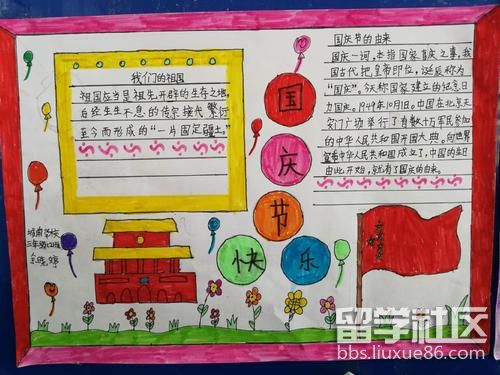 我们的祖国
祖国应当是祖先开辟的生存之地,
后经生生不息的传宗接代繁衍
至今而形成的"一片固定疆土。"
国庆节的由来
国庆一词,本指国家喜庆之事,我
国古代把皇帝即位,诞辰称为
"国庆"。今天称国家建立的纪念日
为国庆。1949年10月1日,中国在北京天
安门广场举行了有数十万军民参加
的中华人民共和国开国大典。向世界
宣布中华人民共和国成立了,中国的生日
由此开始,就有了国庆的由来。
国
庆
节
快
乐
三年级
留学社区
bbs.liuxue86.com